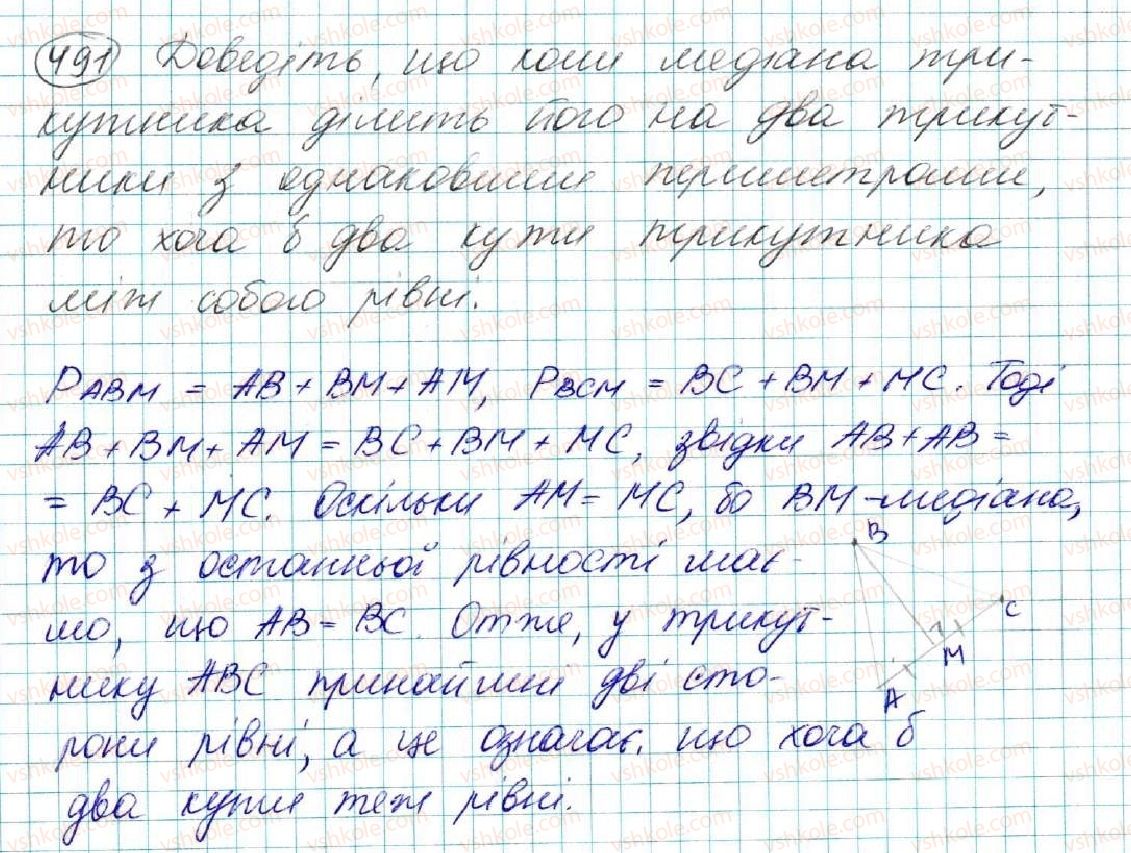 491 Доведіть, що коли медіана три-
кутника ділить його на два трикут-
ники з однаковими периметрами,
то хоча б два кути трикутника
між собою рівні.
PABM = AB + BM + AM, PBCM = BC + BM + MC. Тоді
AB + BM + AM = BC + BM + MC, звідки AB + AB =
= BC + MC. Оскільки AM = MC, бо BM - медіана,
то з останньої рівності має-
мо, що AB = BC. Отже, у трикут-
нику ABC принаймні дві сто-
рони рівні, а це означає, що хоча б
два кути теж рівні.
B
C
M
A
vshkole.com